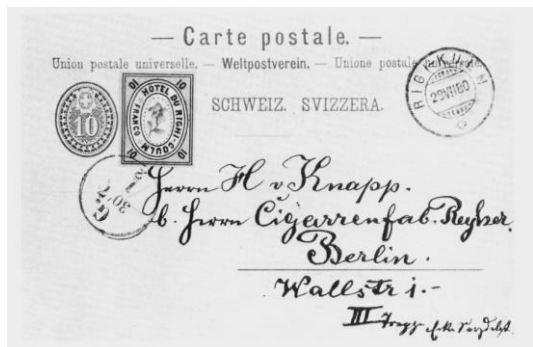 — Carte postale. —
Union postale universelle. — Weltpostverein. — Unione postale universale.
SCHWEIZ. SVIZZERA.
10
HOTEL DU RIGHI-COULM
FRANCO
10 10 10 10
RIGI-KULM
29 VII 80
30/7
Herrn H v. Knapp.
b. Herrn Cigarrenfab.
Berlin.
Wallstr 1.-
III